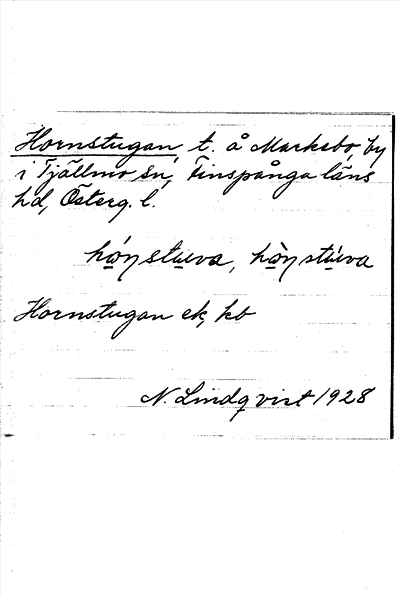 Hornstugan, t. å Marksbo, by
i Tjällmo sn, Finspånga läns
hd, Österg. l.
hóŋstuva, hòŋstúva
Hornstugan ek, kb
N. Lindqvist 1928